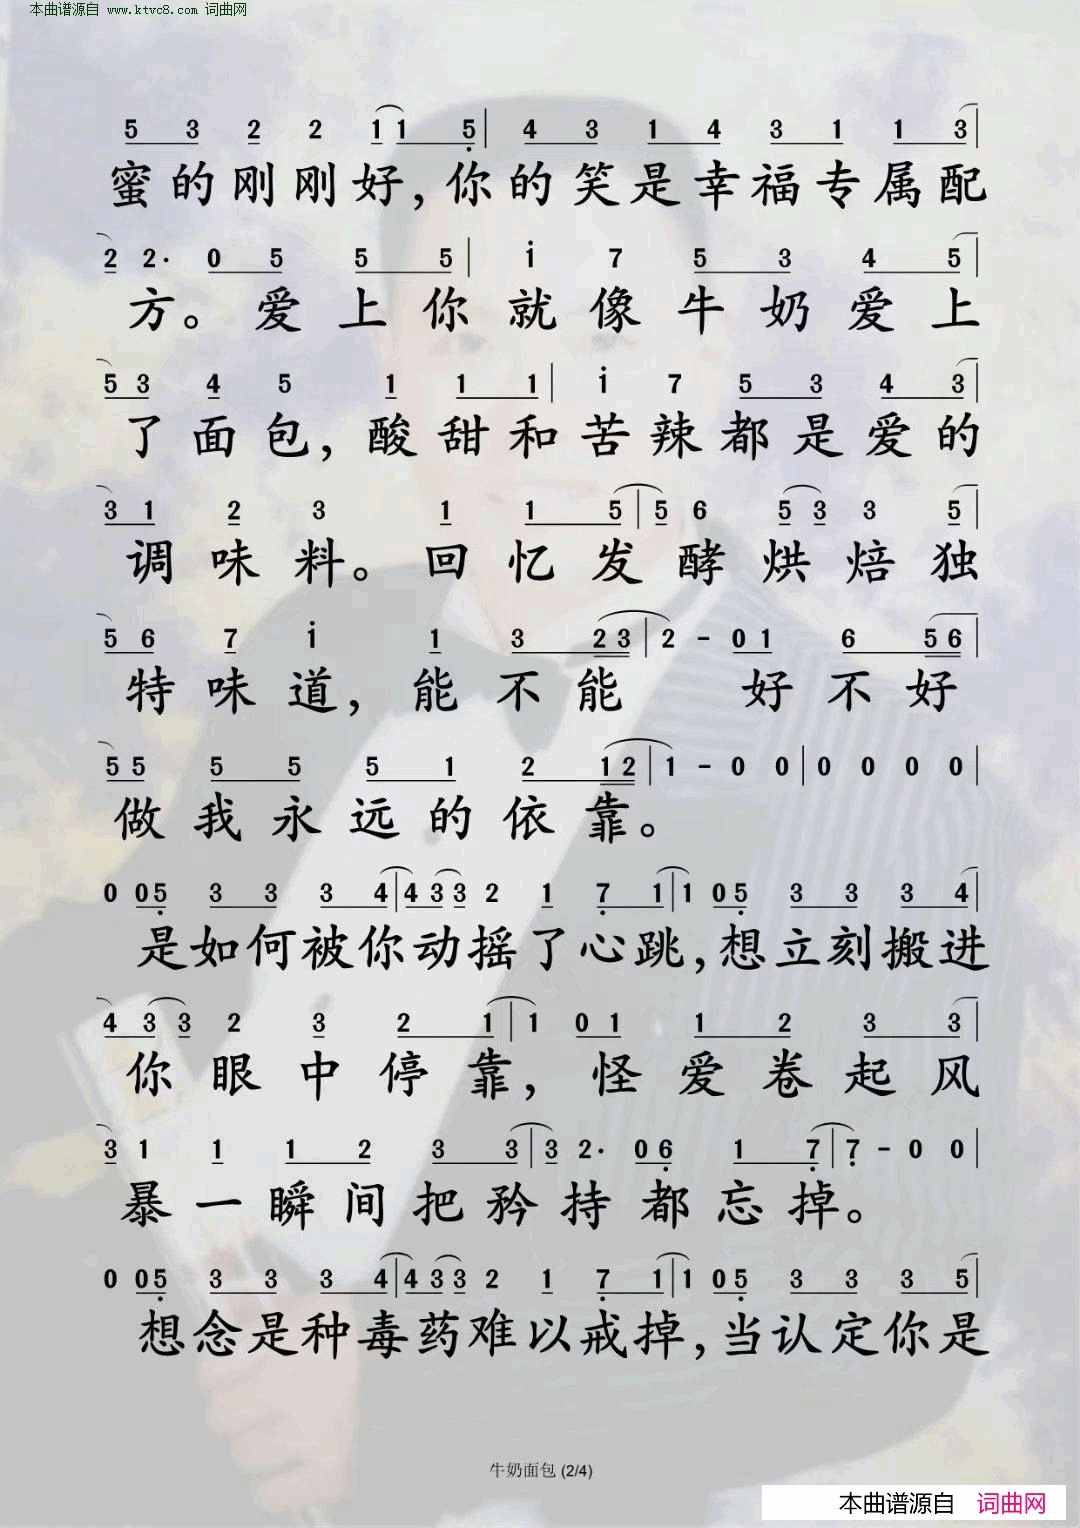 本曲谱源自 www.ktvc8.com 词曲网
5 3 2 2 1 1 5 | 4 3 1 4 3 1 1 3 |
蜜的刚刚好，你的笑是幸福专属配
2 2· 0 5 5 5 | i 7 5 3 4 5 |
方。爱上你就像牛奶爱上
5 3 4 5 1 1 1 | i 7 5 3 4 3 |
了面包，酸甜和苦辣都是爱的
3 1 2 3 1 1 5 | 5 6 5 3 3 5 |
调味料。回忆发酵烘焙独
5 6 7 i 1 3 2 3 | 2 - 0 1 6 5 6 |
特味道，能不能 好不好
5 5 5 5 5 1 2 1 2 | 1 - 0 0 | 0 0 0 0 |
做我永远的依靠。
0 0 5 3 3 3 4 | 4 3 3 2 1 7 1 | 1 0 5 3 3 3 4 |
是如何被你动摇了心跳，想立刻搬进
4 3 3 2 3 2 1 | 1 0 1 1 2 3 3 |
你眼中停靠，怪爱卷起风
3 1 1 1 2 3 3 | 3 2· 0 6 1 7 | 7· - 0 0 |
暴一瞬间把矜持都忘掉。
0 0 5 3 3 3 4 | 4 3 3 2 1 7 1 | 1 0 5 3 3 3 5 |
想念是种毒药难以戒掉，当认定你是
牛奶面包 (2/4)
本曲谱源自 词曲网